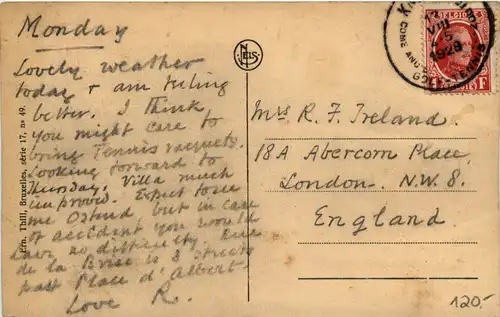 Monday
Lovely weather
today & am feeling
better. I think
you might care to
bring Tennis racquets.
Looking forward to
Thursday. Villa much
improved. Expect to see
me Ostend but in case
of accident you would
have no difficulty Rue
de la Brise is 3 streets
past Place d'Albert
Love R.
Ern. Thill, Bruxelles, série 17, no 49.
NELS
BELGIQUE
VIII
1928
GOLF TENNIS
Mrs R. F. Ireland.
18A Abercorn Place,
London. N.W.8.
England
120.-